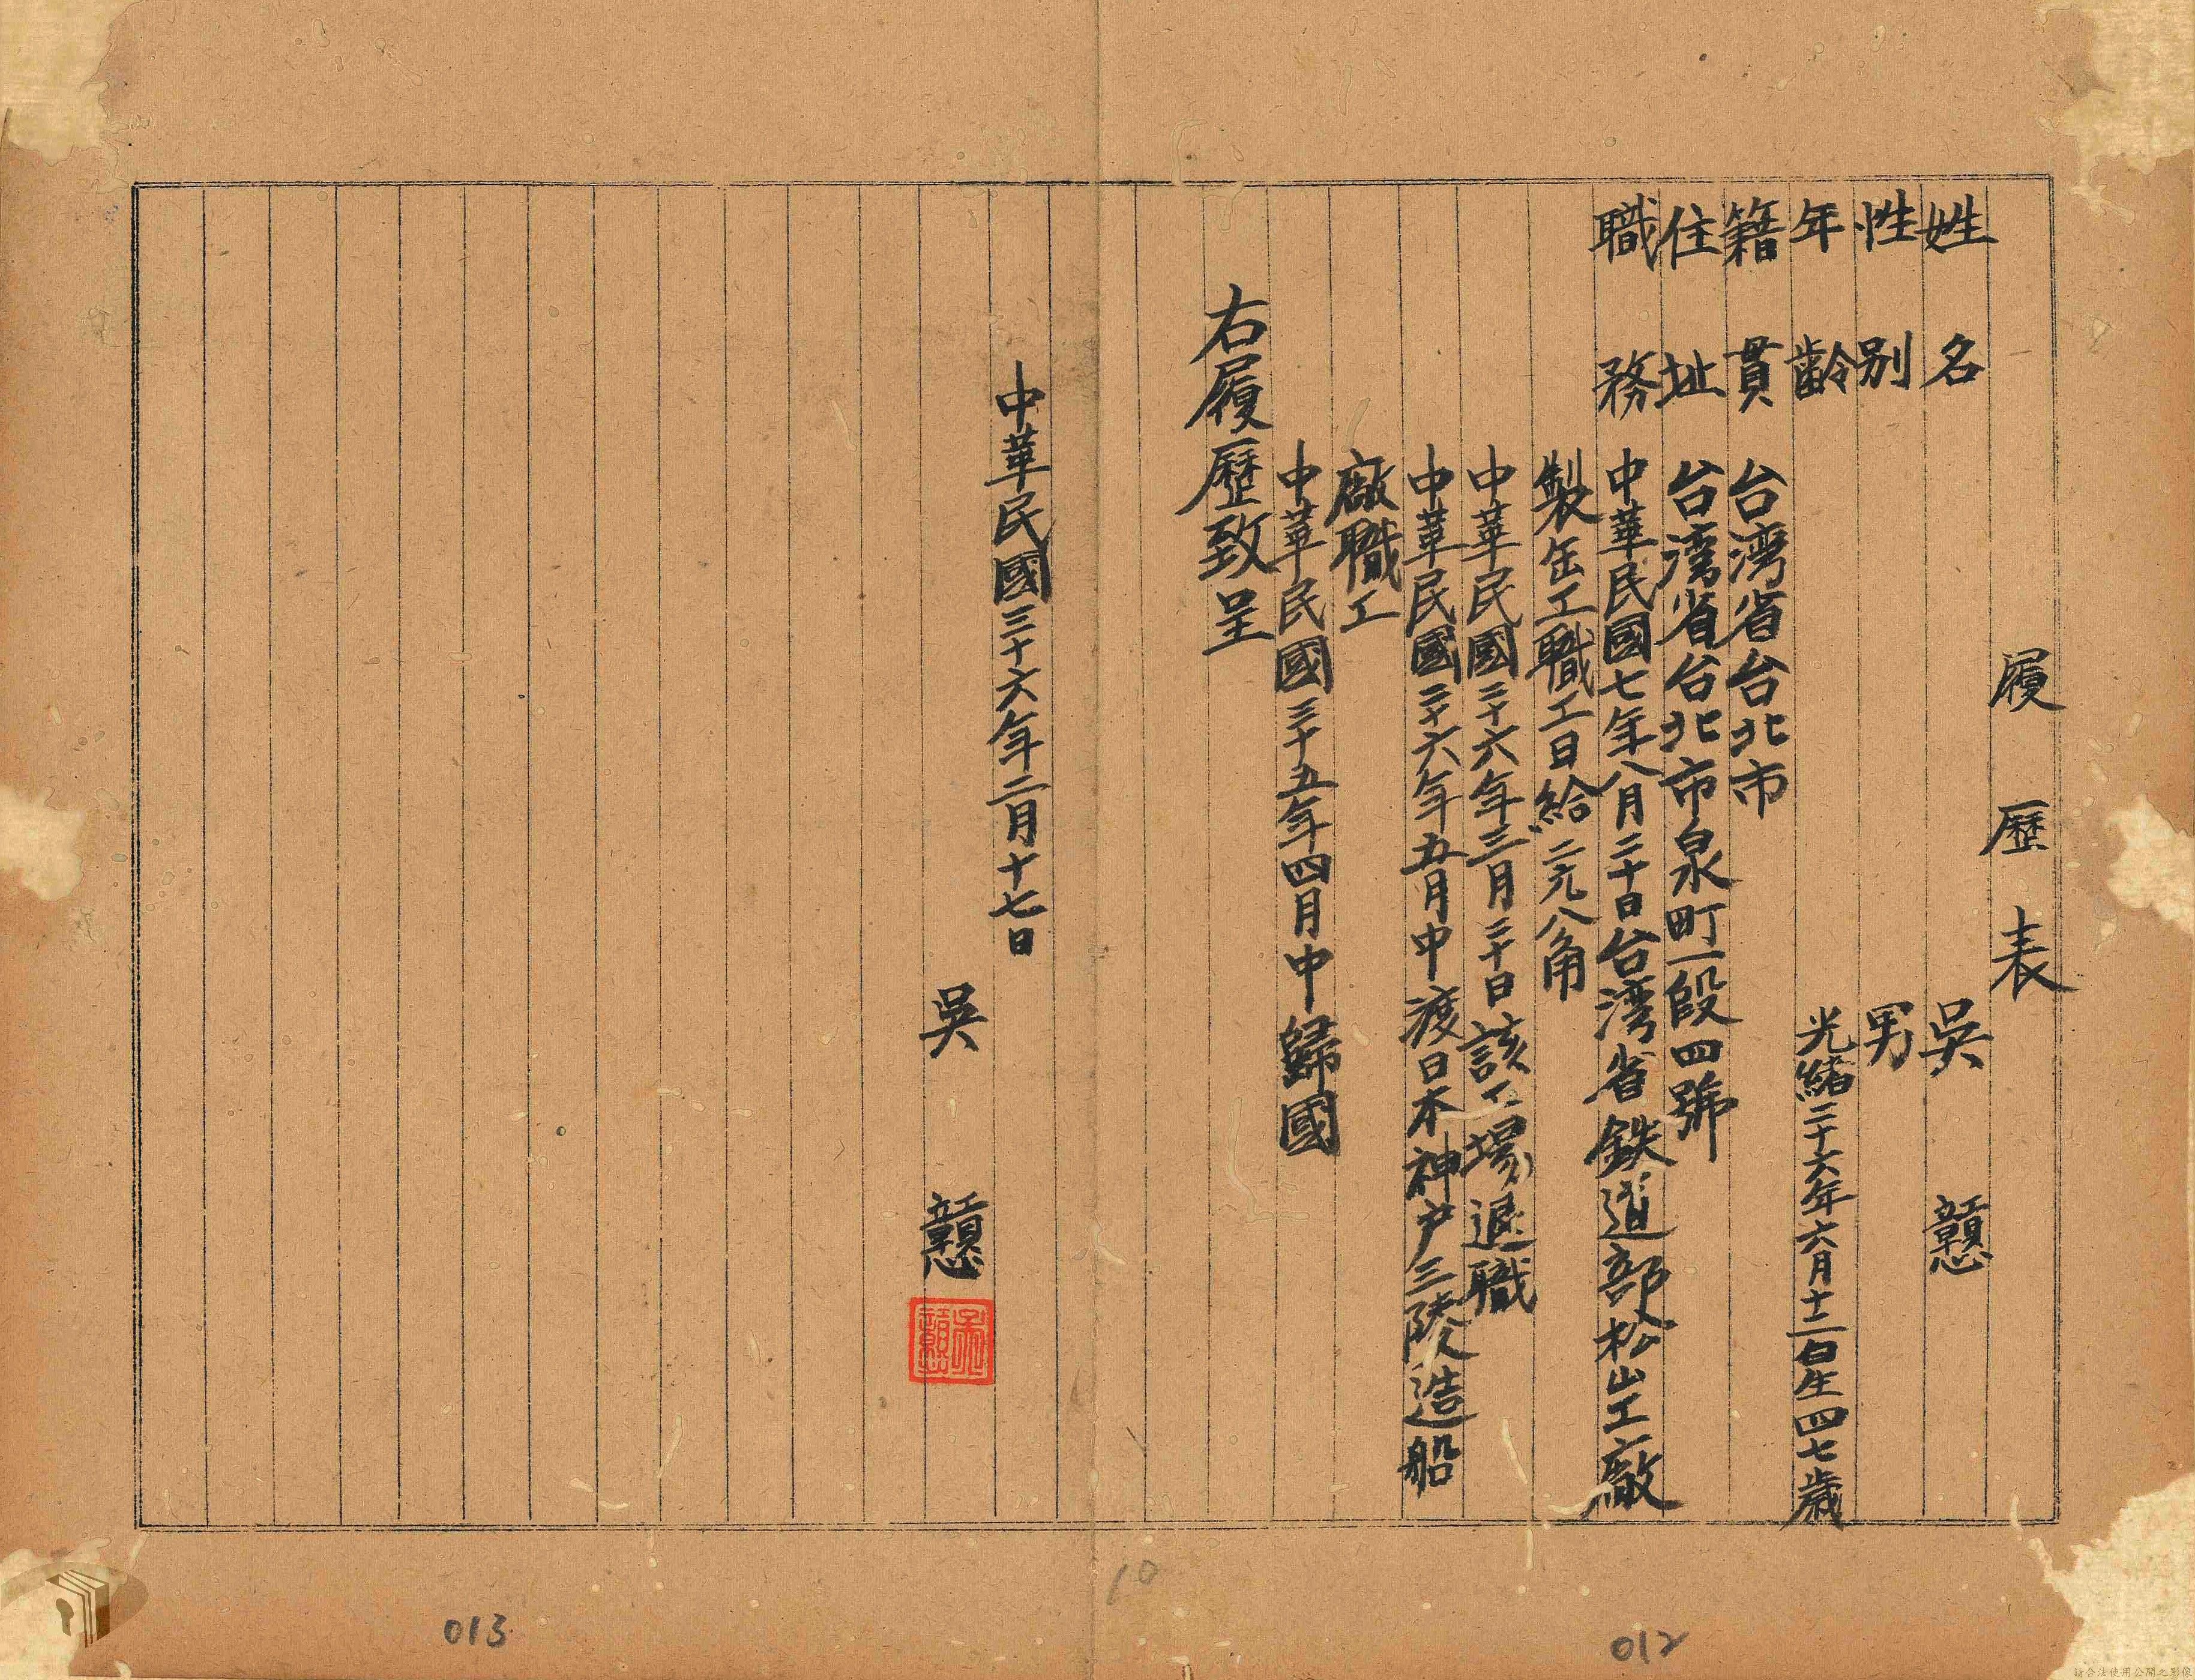 履歷表
姓名 吳戇
性别 男
年齡 光緒二十六年六月十二日生四七歲
籍貫 台湾省台北市
住址 台湾省台北市泉町一段四號
職務 中華民國七年八月二十日台湾省鉄道部松山工廠
製缶工職工日給二元八角
中華民國二十六年三月二十日該工場退職
中華民國二十六年五月中渡日本神戶三陵造船
廠職工
中華民國三十五年四月中歸國
右履歷致呈
中華民國三十六年二月十七日
吳戇
10
012
013
請合法使用公開之影像